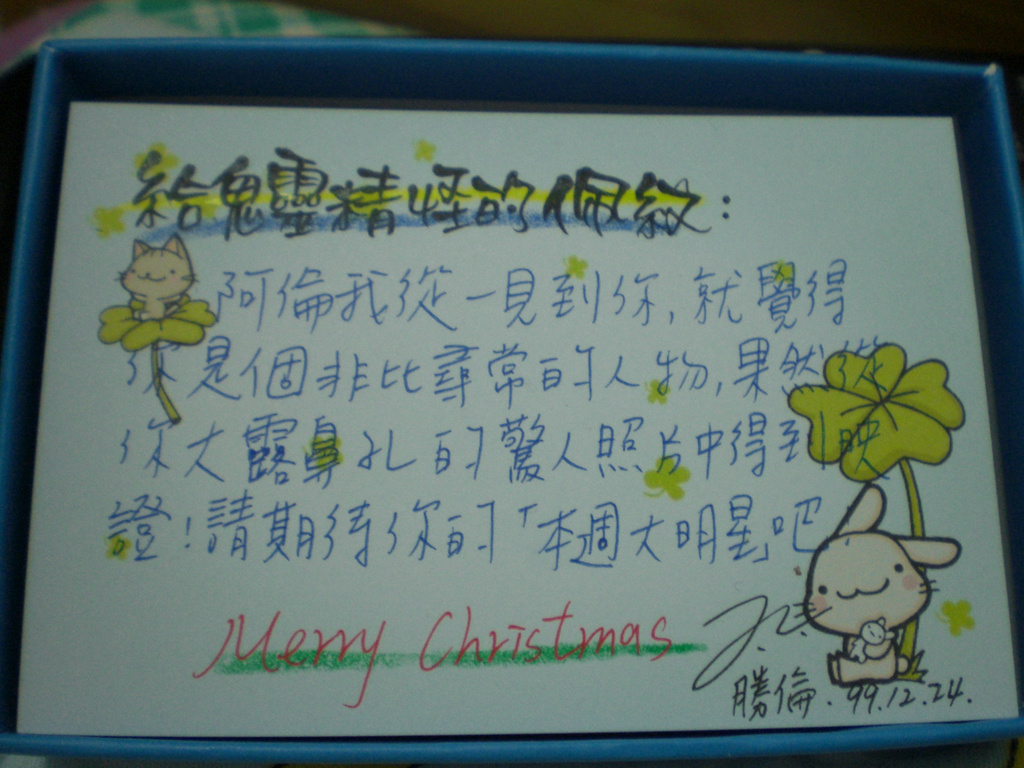 給鬼靈精怪的佩紋:
阿倫我從一見到你,就覺得
你是個非比尋常的人物,果然從
你大露鼻孔的驚人照片中得到映
證!請期待你的「本週大明星」吧
Merry Christmas
勝倫.99.12.24.